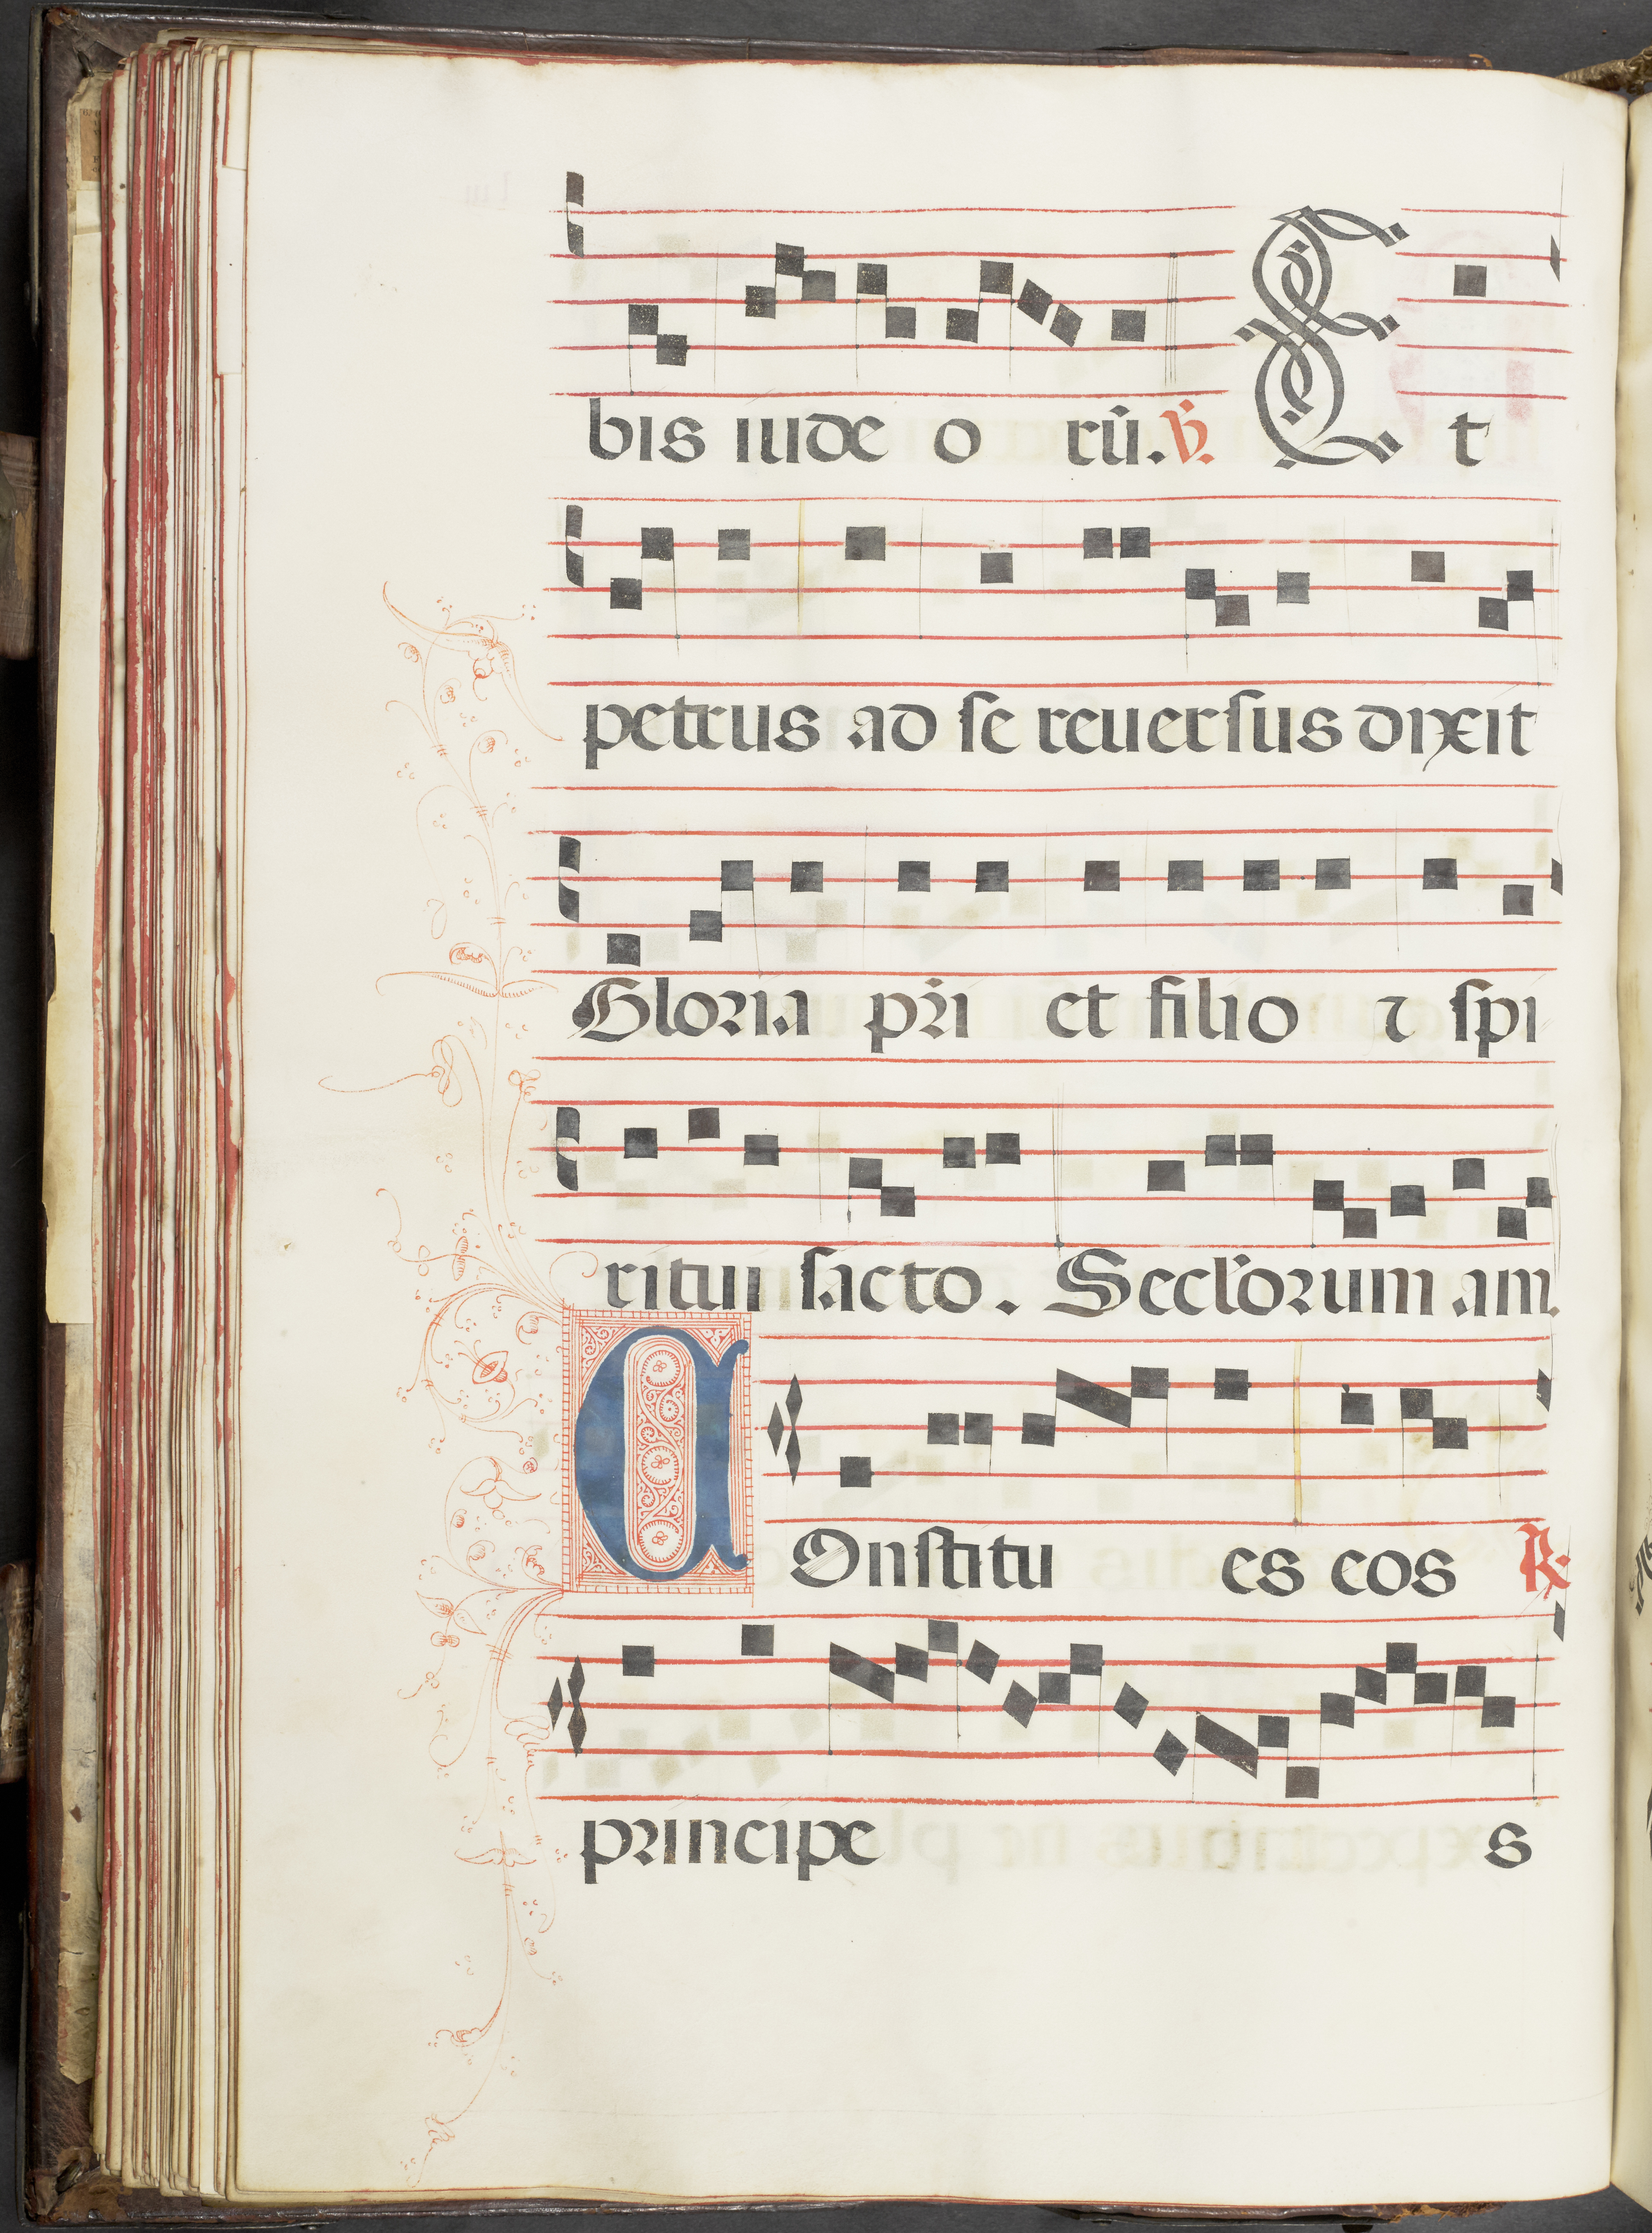 bis iude o rũ. ℣. Et
petrus ad ſe reuerſus dixit
Gloria pr̃i et filio ⁊ ſpi
ritui ſacto. Secl'orum am.
COnſtitu es eos ℟.
principe s